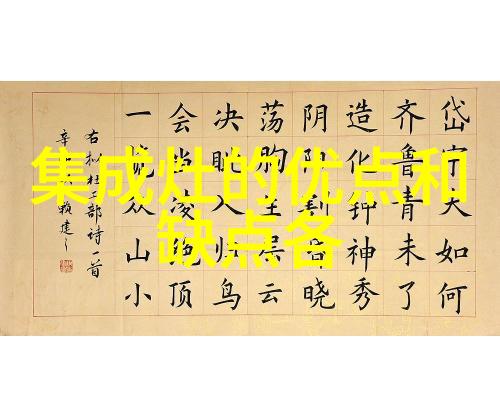 集成灶的优点和
缺点各
岱宗夫如何
齐鲁青未了
造化钟神秀
阴阳割昏晓
荡胸生层云
决眦入归鸟
会当凌绝顶
一览众山小
右拟杜工部诗一首
辛 赖建